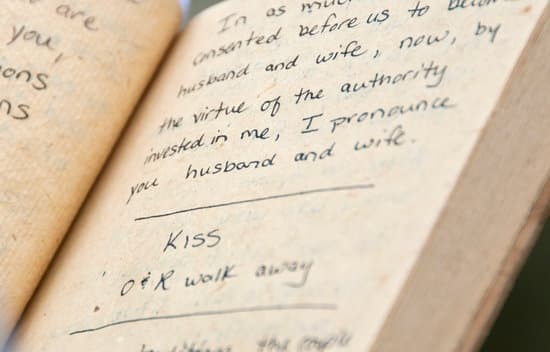 are
you,
ons
ns
In as much
consented before us to become
husband and wife, now, by
the virtue of the authority
invested in me, I pronounce
you husband and wife.
KISS
O & R walk away
the